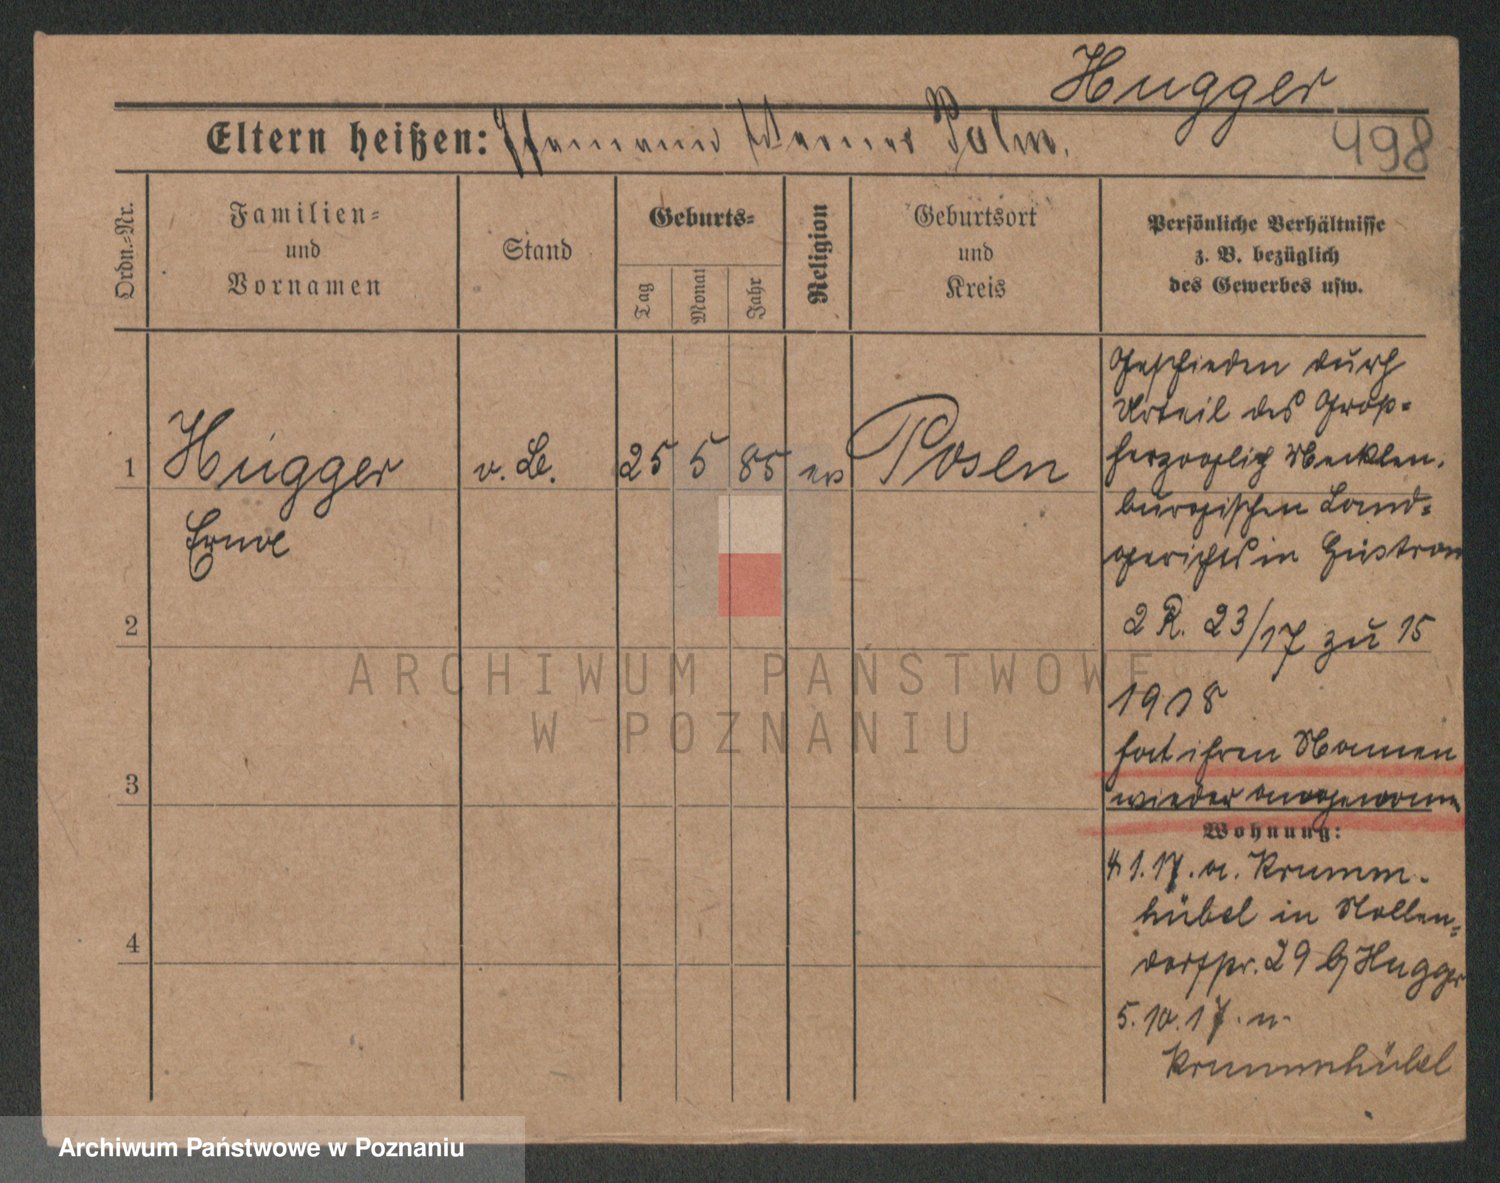 Hugger
498
Eltern heißen: Hermann Werner Palm.
Ordn.-Nr.
Familien-
und
Vornamen
Stand
Geburts-
Tag
Monat
Jahr
Religion
Geburtsort
und
Kreis
Persönliche Verhältnisse
z. B. bezüglich
des Gewerbes usw.
1 Hugger v. B. 25 5 85 ev Posen
Erna
2
3
4
Geschieden durch
Urteil des Groß-
herzoglich Mecklen.
burgischen Land-
gerichts in Güstrow
2 R. 23/17 zu 15
1918
hat ihren Namen
wieder angenomm
Wohnung:
4 1.17. a. Krumm-
hübel in Nollen-
dorfstr. 29 b/ Hugger
5.10.17. n.
Krummhübel
ARCHIWUM PAŃSTWOWE
W POZNANIU
Archiwum Państwowe w Poznaniu